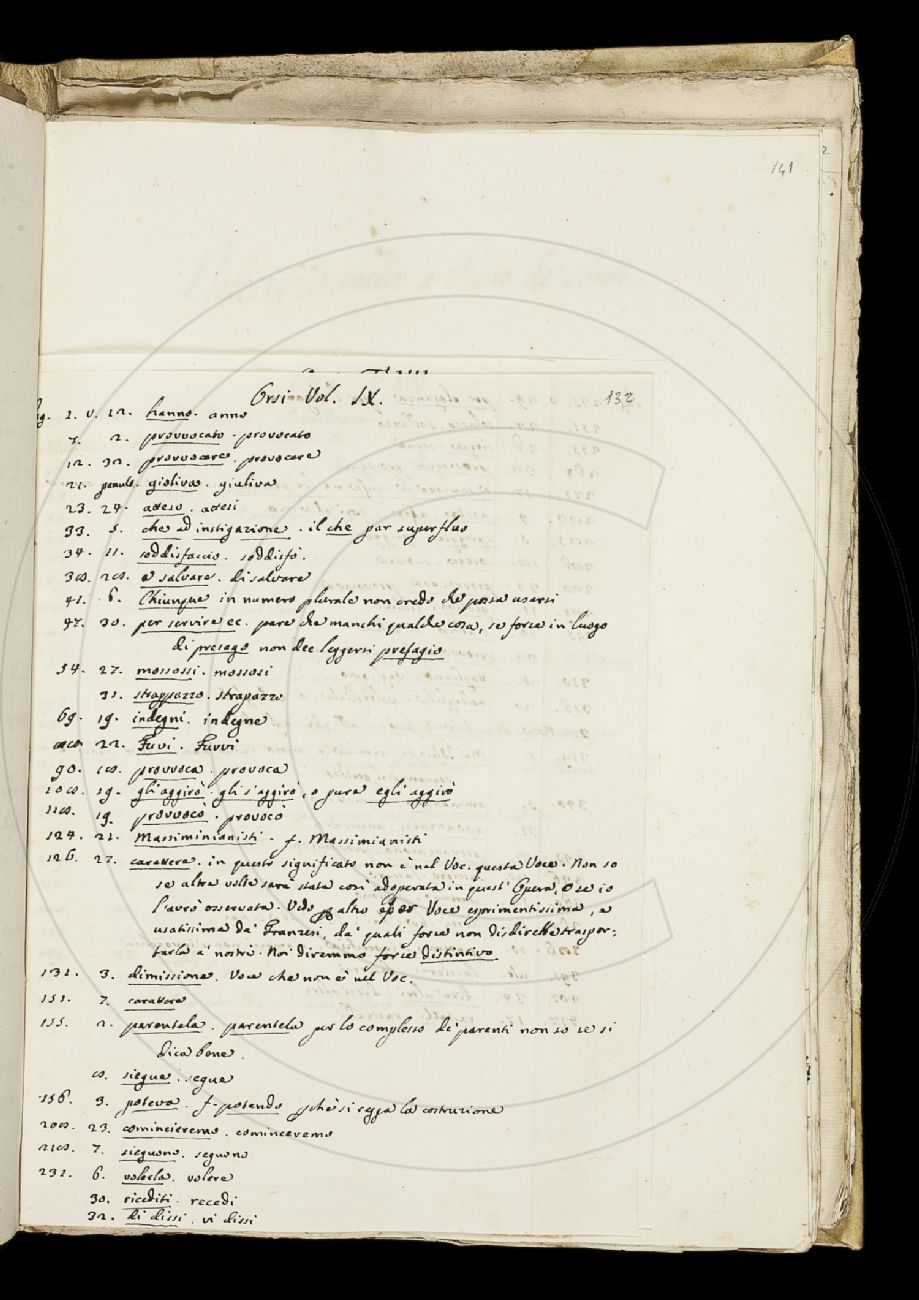 141
2
Orsi Vol. IX. 132
pag. 1. v. 12. hanno. anno
7. 2. provvocato. provocato
12. 32. provvocare. provocare
21. penult. gioliva. giuliva
23. 24. acceso. accesi
33. 5. che ad instigazione. il che par superfluo
34. 11. soddisfaccio. soddisfò.
38. 28. a salvare. di salvare
41. 6. Chiunque in numero plurale non credo che possa usarsi
47. 30. per servire ec. pare che manchi qualche cosa, se forse in luogo
di presago non dee leggersi presagio
54. 27. mossossi. mossosi
31. strappazzo. strapazzo
69. 19. indegni. indegne
22. Furi. Furvi
90. 18. provvoca. provoca
108. 19. gli aggirò. gli s'aggirò, o pure egli aggirò
118. 19. provvocò. provocò
124. 21. Massiminianisti. f. Massimianisti
126. 27. carattere. in questo significato non è nel Voc. questa Voce. Non so
se altre volte sarà stata così adoperata in quest'Opera, o se io
l'avrò osservata. Vedo altro Voce esprimentissima, e
usatissima da' Franzesi, da' quali forse non disdirebbe traspor-
tarla a' nostri. Noi diremmo forse distintivo
131. 3. dimissione. Voce che non è nel Voc.
151. 7. carattere
155. 2. parentela. parentela per lo complesso de' parenti non so se si
dica bene.
8. siegue. segue
156. 3. poteva. f. potendo pchè si regga la costruzione
208. 23. comincieremo. cominceremo
218. 7. sieguono. seguono
231. 6. volerla. volere
30. riceditti. recedi
32. di dissi. vi dissi